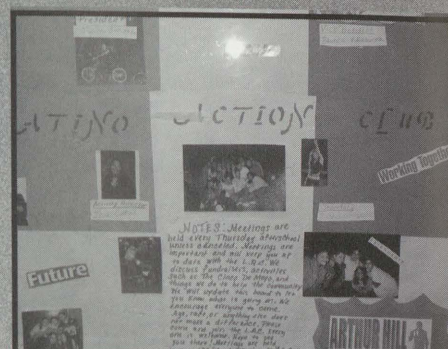 President
ATINO ACTION CLUB
Working Together
NOTES: Meetings are
held every Thursday afterschool
unless canceled. Meetings are
important and will keep you up
to date with the L.A.C. We
discuss fundraisers, activities
such as the Cinco De Mayo, and
things we do to help the community.
We will update this board to let
you know what is going on. We
encourage everyone to come.
Age, race, or anything else does
not make a difference. Please
come and join the L.A.C. Every
one is welcome. Hope to see
you there! Meetings are held
Future
ARTHUR HILL